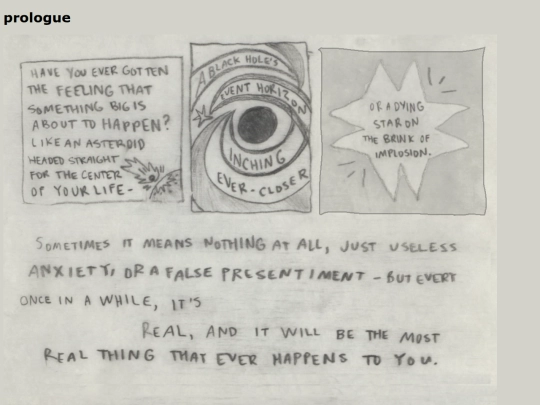 prologue
HAVE YOU EVER GOTTEN
THE FEELING THAT
SOMETHING BIG IS
ABOUT TO HAPPEN?
LIKE AN ASTEROID
HEADED STRAIGHT
FOR THE CENTER
OF YOUR LIFE-
A BLACK HOLE'S
EVENT HORIZON
INCHING
EVER-CLOSER
OR A DYING
STAR ON
THE BRINK OF
IMPLOSION.
SOMETIMES IT MEANS NOTHING AT ALL, JUST USELESS
ANXIETY, OR A FALSE PRESENTIMENT - BUT EVERY
ONCE IN A WHILE, IT'S
REAL, AND IT WILL BE THE MOST
REAL THING THAT EVER HAPPENS TO YOU.